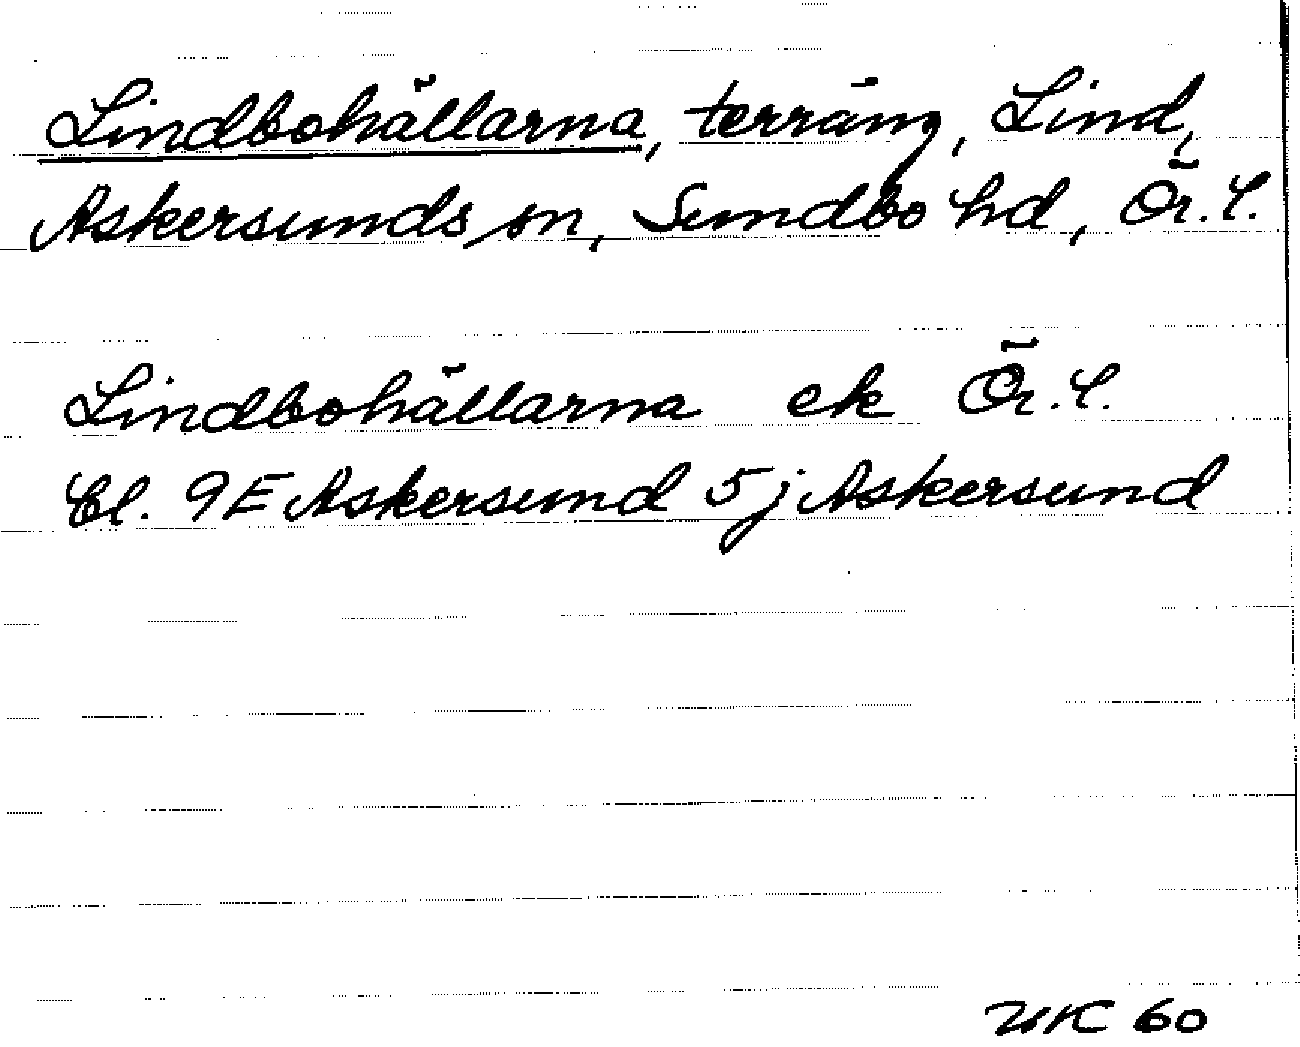 Lindbohällarna, terräng, Lind,
Askersunds sn, Sundbo hd, Ör. l.
Lindbohällarna ek Ör. l.
Bl. 9E Askersund 5j Askersund
UK 60